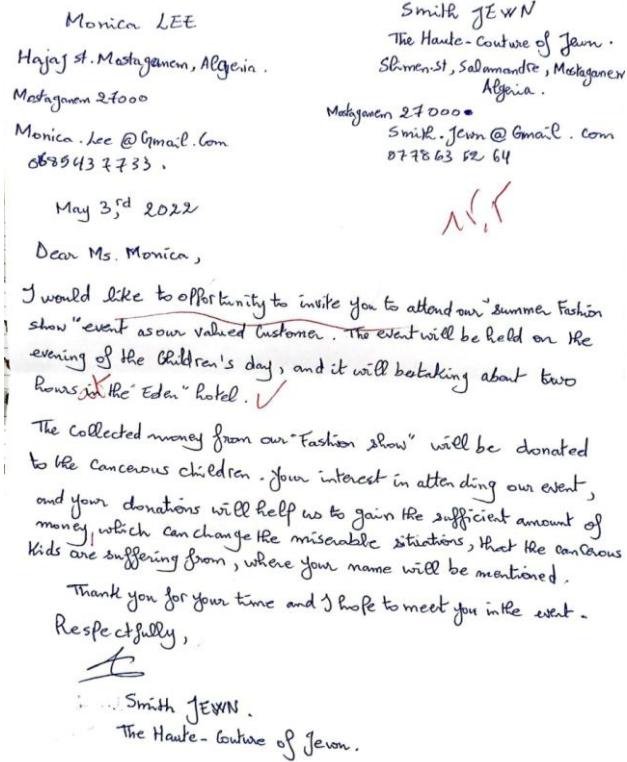 Monica LEE
Hajaj st. Mostaganem, Algeria.
Mostaganem 27000
Monica.Lee@Gmail.Com
0685437733.
Smith JEWN
The Haute-Couture of Jewn.
Slimen.st, Salamandre, Mostaganem
Algeria.
Mostaganem 27000
Smith.Jewn@Gmail.com
0778 63 52 64
15,5
May 3,rd 2022
Dear Ms. Monica,
I would like to opportunity to invite you to attend our "summer Fashion
show" event as our valued Customer. The event will be held on the
evening of the Children's day, and it will be taking about two
hours in the "Eden" hotel.
The collected money from our "Fashion show" will be donated
to the cancerous children. Your interest in attending our event,
and your donations will help us to gain the sufficient amount of
money, which can change the miserable sitiations, that the cancerous
Kids are suffering from, where your name will be mentioned.
Thank you for your time and I hope to meet you in the event.
Respectfully,
Smith JEWN.
The Haute-Couture of Jewn.